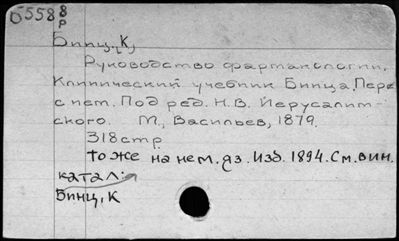 Б5588
Р
Бинц, К,
Руководство фармакологии.
Клинический учебник Бинца. Пере
с нем. Под ред. Н.В. Иерусалим-
ского. М., Васильев, 1879.
318стр
То же на нем. яз. Изд. 1894. См. вин.
катал:
Бинц, К